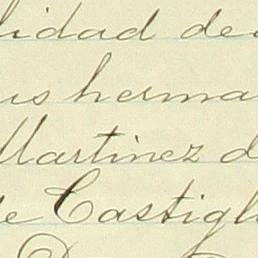 lidad de
us herma
Martinez d
de Castigl